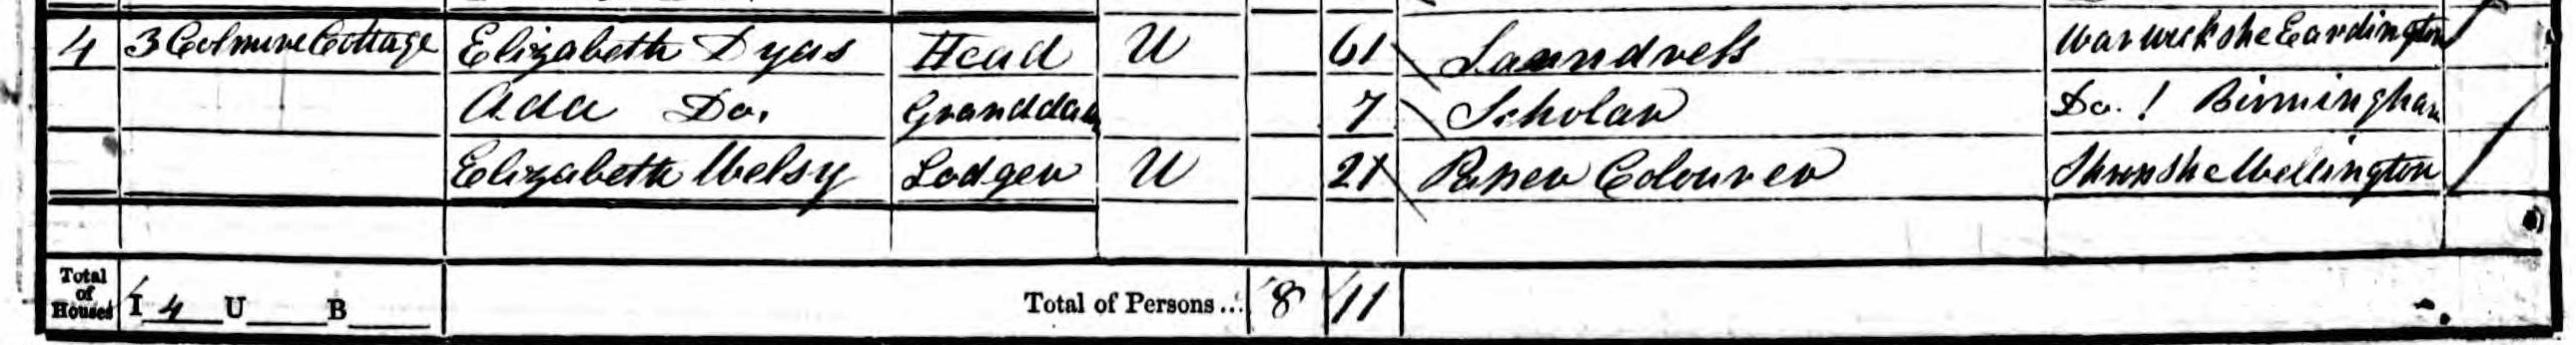 4 3 Colmore Cottage Elizabeth Dyas Head U 61 Laundress Warwickshe Eardington
Ada Do. Granddau 7 Scholar Do. ! Birmingham
Elizabeth Welsy Lodger U 21 Paper Colourer Shropshe Wellington
Total of Houses I 4 U B Total of Persons... 8 11